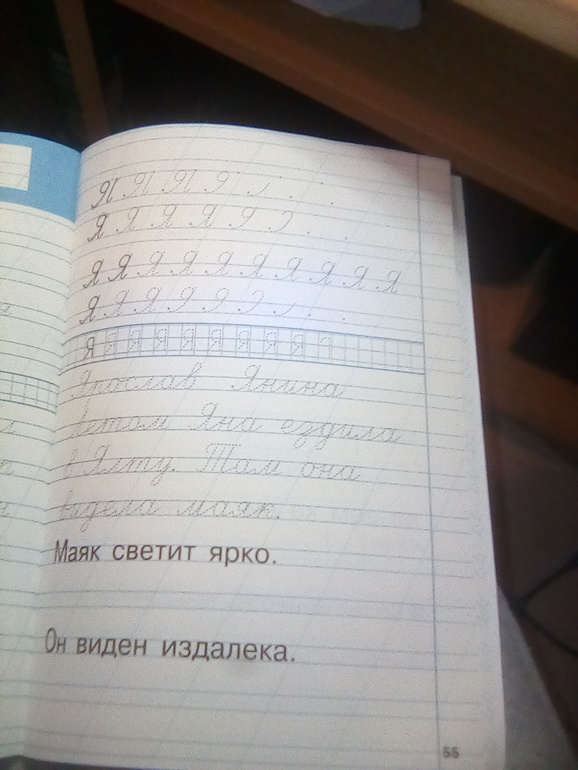 Я Я Я Я
Я Я Я Я Я
Я Я Я Я Я Я Я Я Я Я
Я Я Я Я Я
Я Я Я Я Я Я Я Я Я
Ярослав Янина
Летом Яна ездила
в Ялту. Там она
видела маяк.
Маяк светит ярко.
Он виден издалека.
55